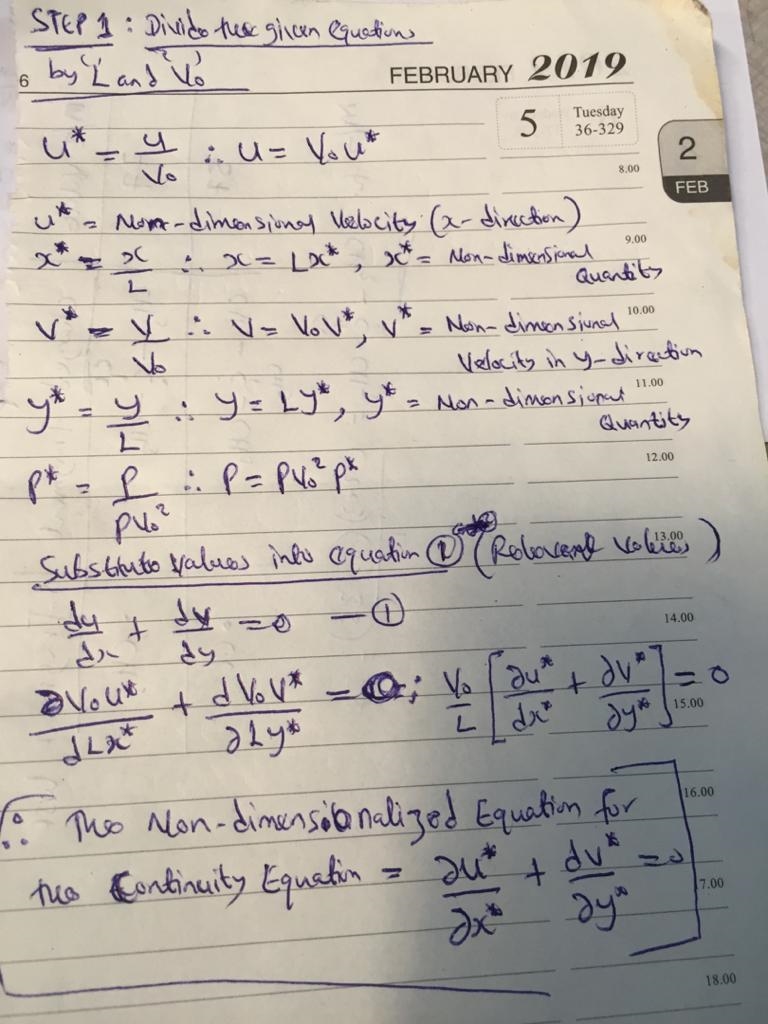 STEP 1 : Divide the given equations
by 'L' and 'V₀'
6
FEBRUARY 2019
5 Tuesday 36-329
2 FEB
u* = u/V₀ ∴ u = V₀u*
8.00
u* = Non-dimensional Velocity (x-direction)
9.00
x* = x/L ∴ x = Lx*, x* = Non-dimensional
Quantity
10.00
v* = v/V₀ ∴ v = V₀v*, v* = Non-dimensional
Velocity in y-direction
11.00
y* = y/L ∴ y = Ly*, y* = Non-dimensional
Quantity
12.00
P* = P/ρV₀² ∴ P = ρV₀²P*
13.00
Substitute values into equation ① (Relevant values)
du/dx + dv/dy = 0 — ①
14.00
∂V₀u*/dLx* + dV₀v*/∂Ly* = 0; V₀/L [∂u*/dx* + ∂v*/∂y*] = 0
15.00
16.00
∴ The Non-dimensionalized Equation for
the Continuity Equation = ∂u*/∂x* + dv*/∂y* = 0
7.00
18.00